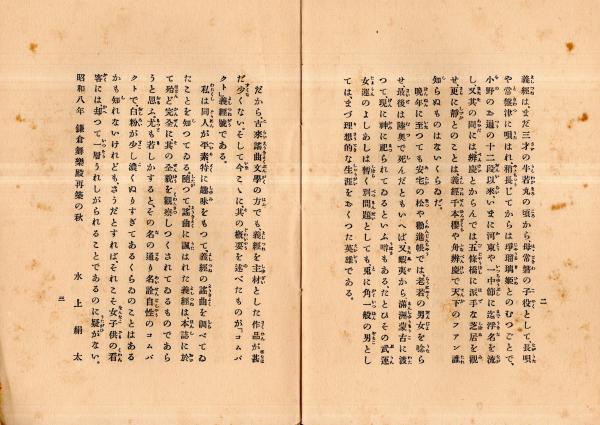 義經は、まだ三才の牛若丸の頃から母常磐の子役として長唄
や常盤津に唄はれ稍長じてからは浄瑠璃姫とのむつごとで、
小野のお通の十二段以來、いまに河東や一中節に迄浮名を流
し又其の間には辨慶とからんでは五條橋に派手な芝居を觀
せ更に靜とのことは義經千本櫻や舟辨慶で天下のファン誰
知らぬものはないくらゐだ。
晩年に至ても安宅の松や勸進帳では、老若の男女を唸ら
せ最後は陸奥で死んだともいへば又蝦夷から滿洲蒙古に渡
つて、現に神に祀られてゐるといふ噂もある。たとひその武運
女運のよしあしは暫く別問題としても兎に角一般の男とし
てはまづ理想的な生涯をおくつた英雄である。
二
だから古來謠曲文學の方でも、義經を主材とした作品が甚
だ少くない。そして今こゝに、其の概要を述べたものが、コムパ
クト「義經號である。
私は同人が平素特に趣味をもつて、義經の謠曲を調べてゐ
たことを知つてゐる。隨つて謠曲に諷はれた義經は本誌に於
て殆ど完全に其の全貌を觀察しつくされてゐるものであら
うと思ふ尤も若しかすると、その名の通り名詮自性のコムパ
クトで、白粉が少し濃くぬりすぎてあるくらゐのことはある
かも知れないけれども、さうだとすれば、それこそ女子供の看
客には却つて一層うれしがられることであるのに疑がない。
昭和八年 鎌倉舞樂殿再築の秋
水上絹太
三